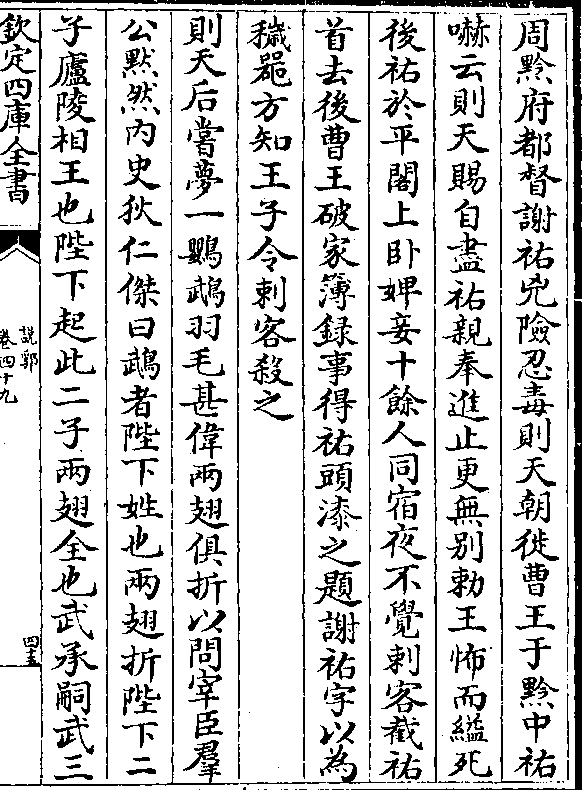 周黔府都督謝祐兇險忍毒則天朝徙曹王于黔中祐
嚇云則天賜自盡祐親奉進止更無別勅王怖而縊死
後祐於平閣上卧婢妾十餘人同宿夜不覺刺客截祐
首去後曹王破家簿録事得祐頭漆之題謝祐字以為
穢噐方知王子令刺客殺之
則天后嘗夢一鸚鵡羽毛甚偉兩翅俱折以問宰臣羣
公黙然内史狄仁傑曰鵡者陛下姓也兩翅折陛下二
子廬陵相王也陛下起此二子兩翅全也武承嗣武三
欽定四庫全書
說郛
卷四十九
四十五